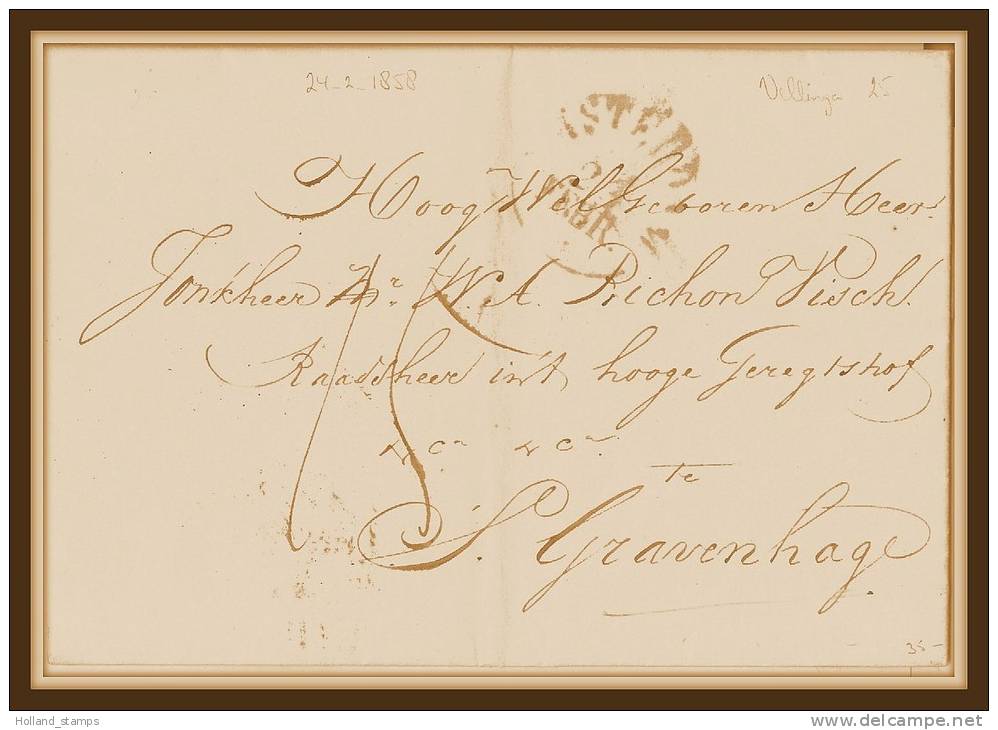 24-2-1858
Vellinga 25
Hoog WelGeboren Heer
Jonkheer Mr. W. A. Prichon Visch.
Raadsheer in't hooge Geregtshof
&ca &ca
te
S. Gravenhage
15
35-
Holland_stamps
www.delcampe.net